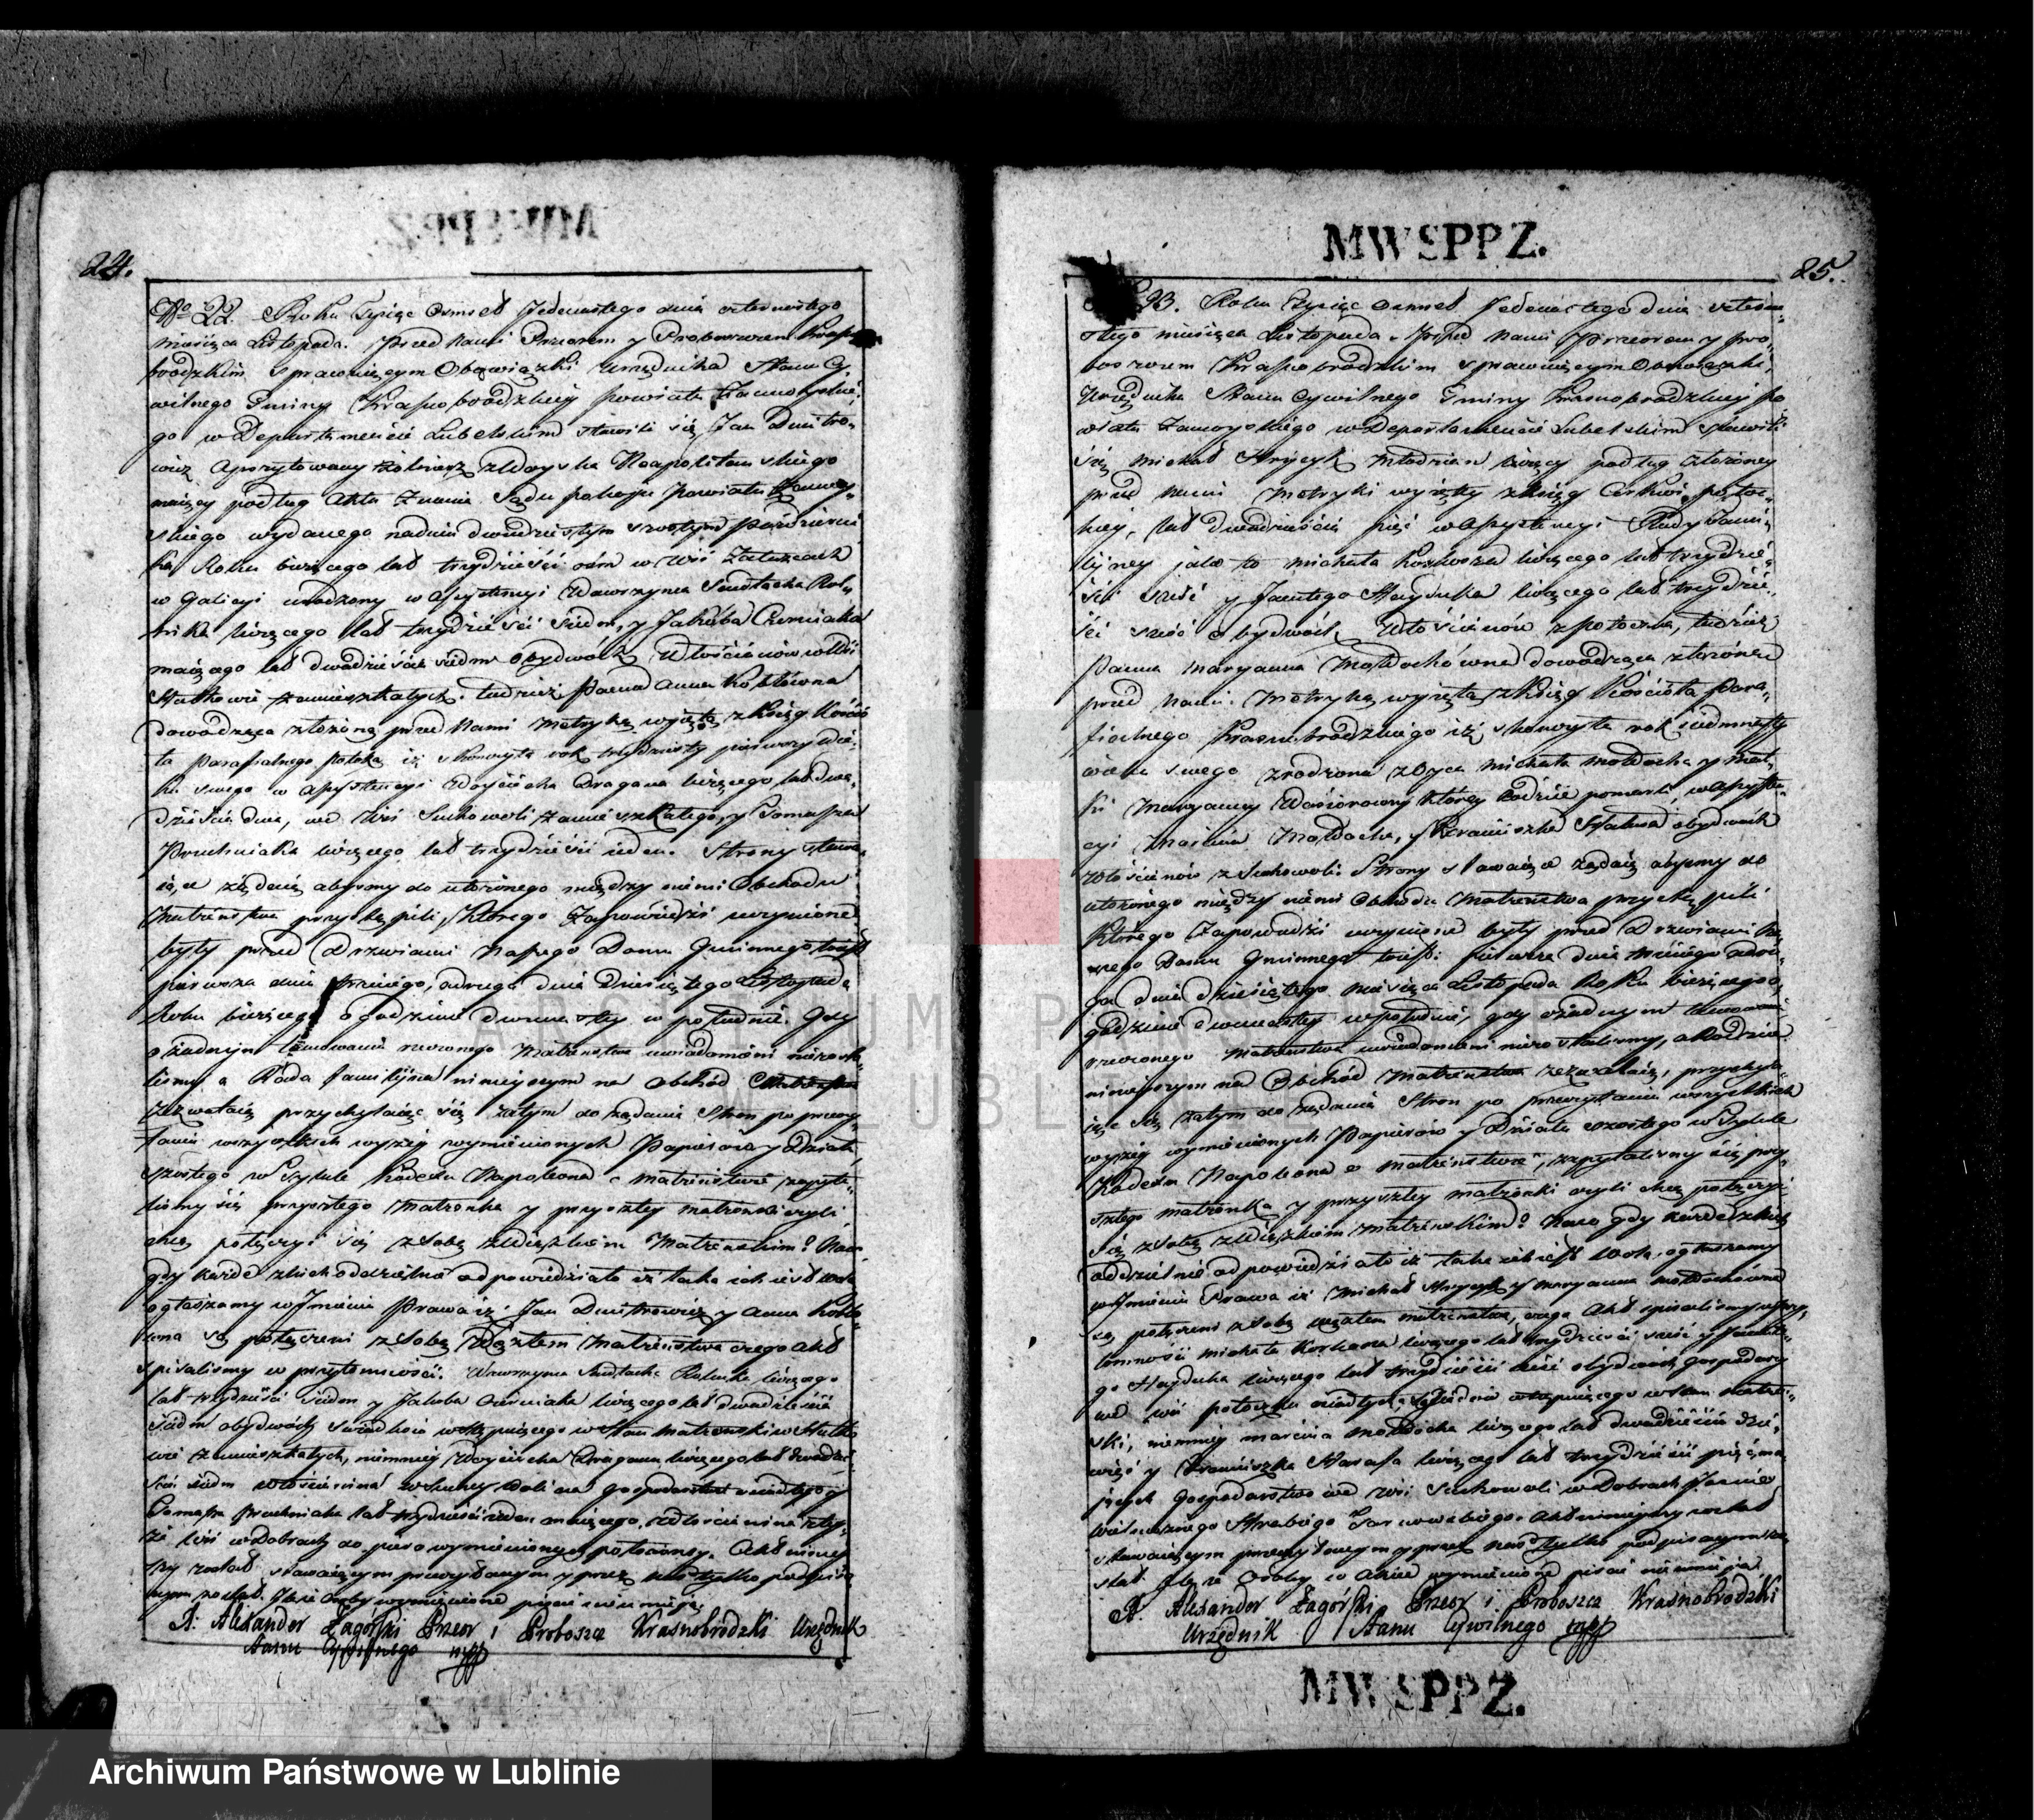 24.
No 22. Roku Tysiąc Osmset Jedenastego dnia czternastego
miesiąca Listopada. Przed Nami Przeorem y Proboszczem Krasno
brodzkim sprawuiącym Obowiązki Urzędnika Stanu Cy,
wilnego Gminy Krasnobrodzkiey Powiatu Zamoyskie,
go w Departamencie Lubelskim stawili się Jan Dmitro,
wicz Żołnierz z Woyska Neapolitanskiego
maiący podług Aktu Znania Sądu pokoju Powiatu Zamoy,
skiego wydanego na dniu dwudziestym szostym Pazdzierni
ka Roku bieżącego lat trzydzieści ośm w Wsi
w Galicyi urodzony w Assystencyi Wawrzynca
liczącego lat trzydzieści siedm, y Jakuba
maiącego lat dwadzieścia siedm obydwóch Włościanów w Wsi
zamieszkałych, tudzież Panna Anna Kostówna
dowodząca złożoną przed Nami Metryką wyiętą z Xiąg Kościo
ła Parafialnego iż skonczyła rok trzydziesty pierwszy wie,
ku swego w Assystencyi Woyciecha Dragana liczącego lat dwa,
dzieścia dwa, we Wsi Suchowoli zamieszkałego, y Tomasza
Pruchniaka liczącego lat trzydzieści ieden. Strony stawa,
iące żądaią abysmy do ułożonego między niemi Obchodu
Małżeństwa przystąpili, którego Zapowiedzi uczynione
były przed Drzwiami Naszego Domu Gminnego to iest
pierwsza dnia trzeciego, a druga dnia Dziesiątego Listopada
Roku bieżącego o godzinie dwunastey w południe. Gdy
o żadnym tamowaniu rzeczonego Małżeństwa uwiadomieni niezosta,
lismy a Rada familyina ninieyszym na obchód Małżeństwa
zezwalaią przychylaiąc się zatym do żądania Stron po przeczy,
taniu wszystkich wyżey wymienionych Papierów y Działu
szóstego w Tytule Kodexu Napoleona o Małżeństwie zapyta,
lismy się przyszłego Małżonka y przyszłey małżonki czyli
chcą połączyć się z sobą związkiem Małżeńskim? Na co
gdy każde z nich oddzielnie odpowiedziało iż taka ich iest wola
ogłaszamy w Imieniu Prawa iż Jan Dmitrowicz y Anna Kostó
wna są połączeni z sobą węzłem Małżeństwa czego Akt
spisalismy w przytomności. Wawrzynca liczącego
lat trzydzieści siedm y Jakuba liczącego lat dwadzieścia
siedm obydwóch wstępuiącego w Stan małżenski w
zamieszkałych, niemniey Woyciecha Dragana liczącego lat dwadzie,
Tomasza Pruchniaka lat trzydzieści ieden maiącego,
Akt nineiy
szy został stawaiącym przeczytanym y przez nas tylko podpisa,
nym został. Gdzie Osoby wymienione pisać nieumieią.
X. Alexander Żagórski Przeor i Proboszcz Krasnobrodzki Urzędnik
Stanu Cywilnego mpp
MWSPPZ.
25.
23. Roku Tysiąc Osmset Jedenastego dnia czterna,
stego miesiąca Listopada. Przed Nami Przeorem y Pro,
boszczem Krasnobrodzkim sprawuiącym Obowiązki,
Urzędnika Stanu Cywilnego Gminy Krasnobrodzkiey Po
wiatu Zamoyskiego w Departamencie Lubelskim stawili
się Michał Hrycyk Młodzian liczący podług złożoney
przed nami Metryki wyiętey z Xiąg Cerkwi
lat dwadzieścia pięć w Assystencyi Rady Fami,
liyney jako to Michała liczącego lat trzydzie,
ści sześć y Jacentego Hayduka liczącego lat trzydzie,
ści sześć obydwóch Włościanów z Potoczka, tudzież
Panna Maryanna Mołdochówna dowodząca złożoną
przed Nami Metryką wyiętą z Xiąg Kościoła Para,
fialnego Krasnobrodzkiego iż skonczyła rok siedmnasty
wieku swego zrodzona z Oyca Michała Mołdocha y Mat,
ki Maryanny którzy Rodzice pomarli, w Assysten,
cyi Marcina Mołdocha, y Franciszka Harasa obydwóch
Włościanów z Suchowoli. Strony stawaiące żądaią abysmy do
ułożonego między niemi Obchodu Małżeństwa przystąpili
którego Zapowiedzi uczynione były przed Drzwiami Na,
szego Domu Gminnego to iest: pierwsza dnia trzeciego a dru,
ga dnia dziesiątego miesiąca Listopada Roku bieżącego o
godzinie dwunastey w południe, gdy o żadnym tamowaniu
rzeczonego Małżeństwa uwiadomieni niezostalismy, a Rodzice
ninieyszym na Obchód Małżeństwa zezwalaią, przychyla,
iąc się zatym do żądania Stron po przeczytaniu wszystkich
wyżey wymienionych Papierów y Działu szóstego w Tytule
Kodexu Napoleona o Małżeństwie, zapytalismy się przy,
szłego małżonka y przyszłey małżonki czyli chcą połączyć
się z sobą związkiem Małżeńskim? Na co gdy każde z nich
oddzielnie odpowiedziało iż taka ich iest wola, ogłaszamy
w Imieniu Prawa iż Michał Hrycyk y Maryanna Mołdochówna
są połączeni z sobą węzłem małżeństwa, czego Akt spisalismy w przy,
tomności Michała liczącego lat trzydzieści sześć y Jacente,
go Hayduka liczącego lat trzydzieści sześć obydwóch gospodarzy
we wsi Potoczku wstępuiącego w Stan małże,
ski, niemniey Marcina Mołdocha liczącego lat dwadzieścia dzie,
więć y Franciszka Harasa liczącego lat trzydzieści pięć ma,
iących Gospodarstwo we wsi Suchowoli w Dobrach Jaśnie
wielmożnego Hrabiego Tarnowskiego. Akt ninieyszy został
stawaiącym przeczytanym y przez nas tylko podpisanym zo
stał. Gdyż Osoby w Akcie wymienione pisać nieumieią.
X. Alexander Żagórski Przeor i Proboszcz Krasnobrodzki
Urzędnik Stanu Cywilnego mpp
MWSPPZ.
ARCHIWUM PAŃSTWOWE
W LUBLINIE
Archiwum Państwowe w Lublinie